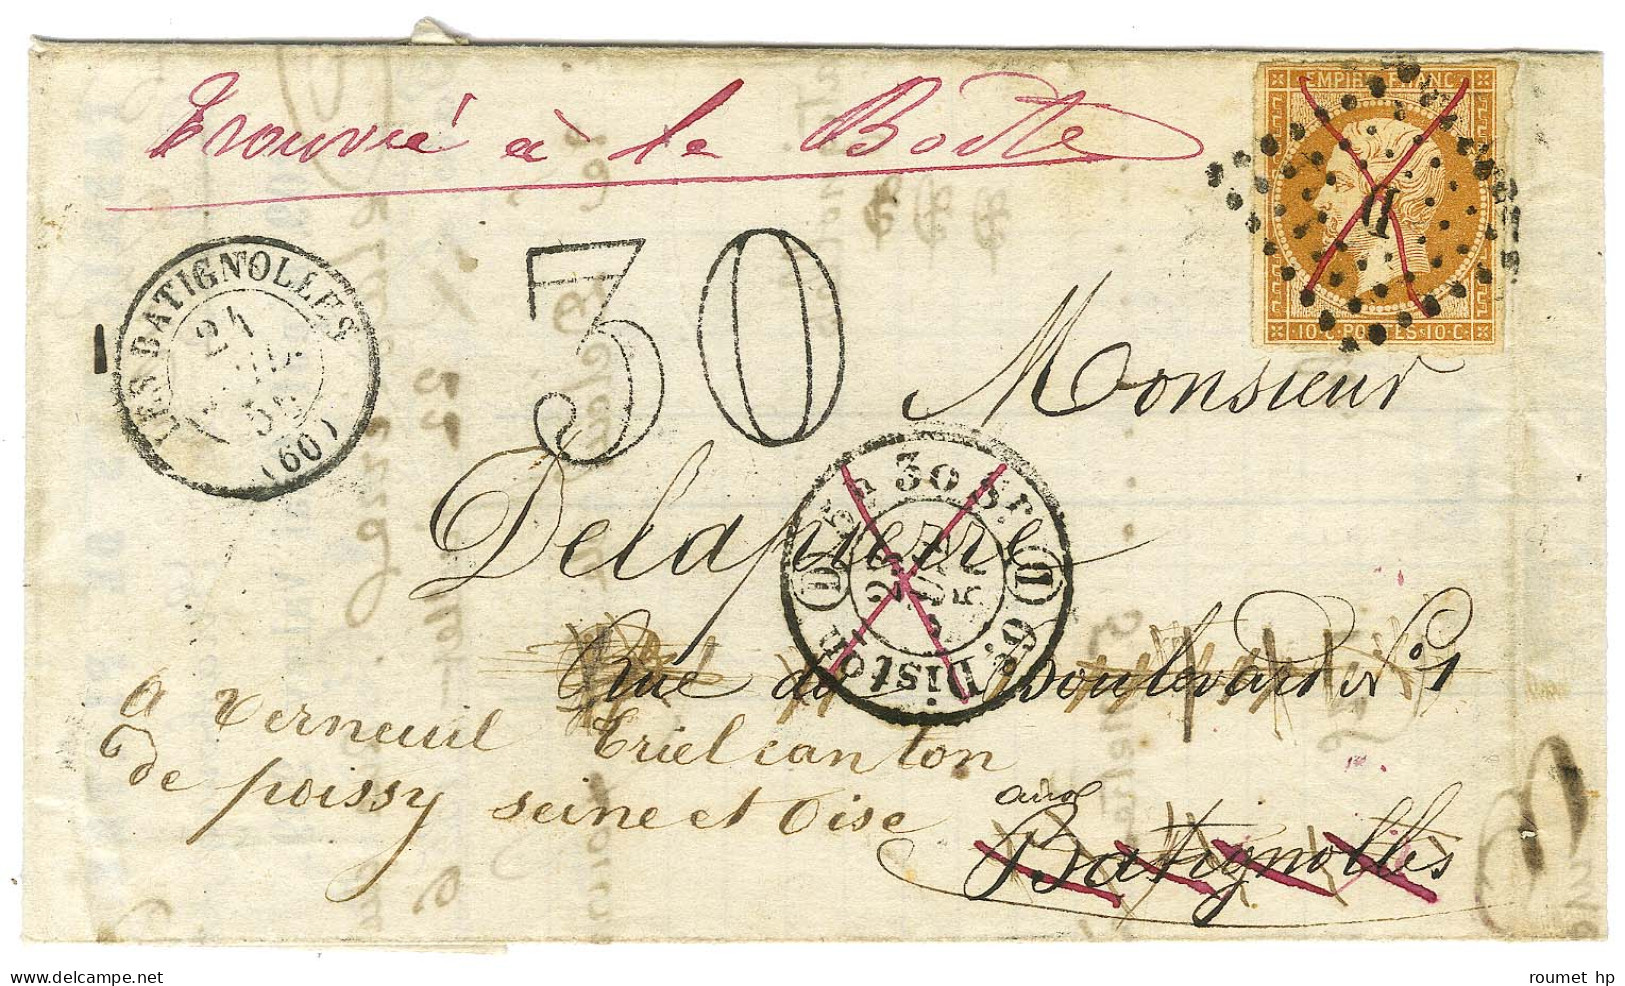 Trouvé à la Boîte
EMPIRE FRANC
10 C. POSTES 10 C.
D
LES BATIGNOLLES
21
(60)
30
Monsieur
Delapierre
Rue du Boulevard No. 1
a Verneuil Triel canton
de poissy seine et Oise
Batignolles
Diston D 5 h 30 Sr.
roumet hp